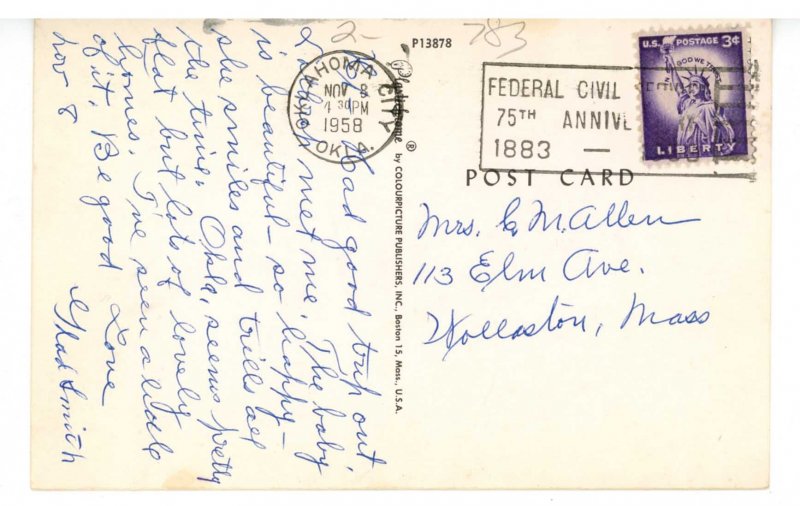 2- 783
P13878
OKLAHOMA CITY
NOV 8
4 30 PM
1958
OKLA.
FEDERAL CIVIL
75TH ANNIVE
1883 —
U.S. POSTAGE 3¢
IN GOD WE TRUST
LIBERTY
POST CARD
Mrs. C. M. Allen
113 Elm Ave.
Wollaston, Mass
Plastichrome ® by COLOURPICTURE PUBLISHERS, INC., Boston 15, Mass., U.S.A.
Had good trip out.
met me. The baby
is beautiful - so happy -
she smiles and trills all
the time. Okla. seems pretty
flat but lots of lovely
homes. I've seen a little
of it. Be good Love
Nov 8 Glad Smith